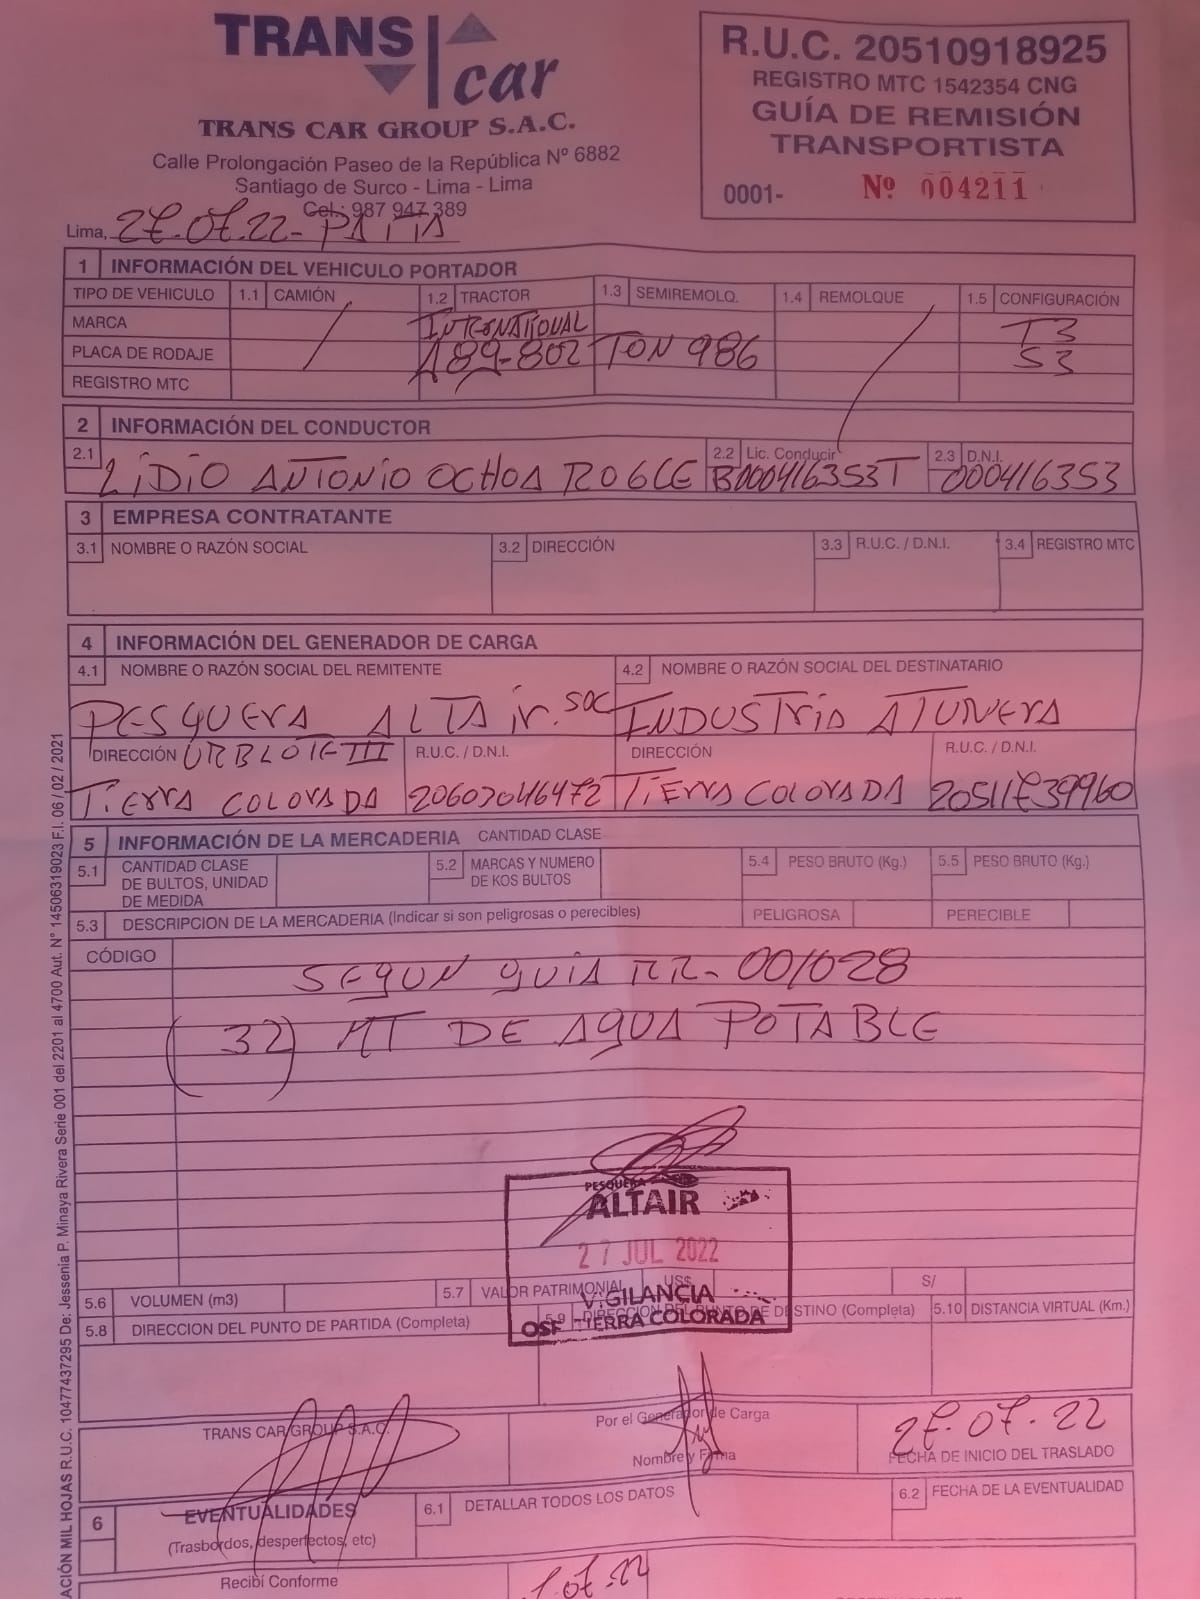 TRANS car
TRANS CAR GROUP S.A.C.
Calle Prolongación Paseo de la República Nº 6882
Santiago de Surco - Lima - Lima
Cel.: 987 947 389
R.U.C. 20510918925
REGISTRO MTC 1542354 CNG
GUÍA DE REMISIÓN
TRANSPORTISTA
0001- Nº 004211
Lima, 27.07.22- PAITA
1 INFORMACIÓN DEL VEHICULO PORTADOR
TIPO DE VEHICULO 1.1 CAMIÓN 1.2 TRACTOR 1.3 SEMIREMOLQ. 1.4 REMOLQUE 1.5 CONFIGURACIÓN
MARCA INTERNATIONAL T3
PLACA DE RODAJE A89-802 TON 986 S3
REGISTRO MTC
2 INFORMACIÓN DEL CONDUCTOR
2.1 2.2 Lic. Conducir 2.3 D.N.I.
LIDIO ANTONIO OCHOA ROBLE B000416353T 000416353
3 EMPRESA CONTRATANTE
3.1 NOMBRE O RAZÓN SOCIAL 3.2 DIRECCIÓN 3.3 R.U.C. / D.N.I. 3.4 REGISTRO MTC
4 INFORMACIÓN DEL GENERADOR DE CARGA
4.1 NOMBRE O RAZÓN SOCIAL DEL REMITENTE 4.2 NOMBRE O RAZÓN SOCIAL DEL DESTINATARIO
PESQUERA ALTAIR. SAC INDUSTRIA ATUNERA
DIRECCIÓN URB LOTE III R.U.C. / D.N.I. DIRECCIÓN R.U.C. / D.N.I.
TIERRA COLORADA 20603046472 TIERRA COLORADA 20511739960
5 INFORMACIÓN DE LA MERCADERIA CANTIDAD CLASE
5.1 CANTIDAD CLASE DE BULTOS, UNIDAD DE MEDIDA 5.2 MARCAS Y NUMERO DE KOS BULTOS 5.4 PESO BRUTO (Kg.) 5.5 PESO BRUTO (Kg.)
5.3 DESCRIPCION DE LA MERCADERIA (Indicar si son peligrosas o perecibles) PELIGROSA PERECIBLE
CÓDIGO
SEGUN GUIA RR- 001028
(32) MT DE AGUA POTABLE
PESQUERA
ALTAIR
27 JUL 2022
VIGILANCIA
OSF - TIERRA COLORADA
5.6 VOLUMEN (m3) 5.7 VALOR PATRIMONIAL US$ S/
5.8 DIRECCION DEL PUNTO DE PARTIDA (Completa) 5.9 DIRECCION DEL PUNTO DE DESTINO (Completa) 5.10 DISTANCIA VIRTUAL (Km.)
TRANS CAR GROUP S.A.C. Por el Generador de Carga 27.07.22
Nombre y Firma FECHA DE INICIO DEL TRASLADO
6 EVENTUALIDADES 6.1 DETALLAR TODOS LOS DATOS 6.2 FECHA DE LA EVENTUALIDAD
(Trasbordos, desperfectos, etc)
Recibí Conforme
ACIÓN MIL HOJAS R.U.C. 10477437295 De: Jessenia P. Minaya Rivera Serie 001 del 2201 al 4700 Aut. N° 14506319023 F.I. 06 / 02 / 2021